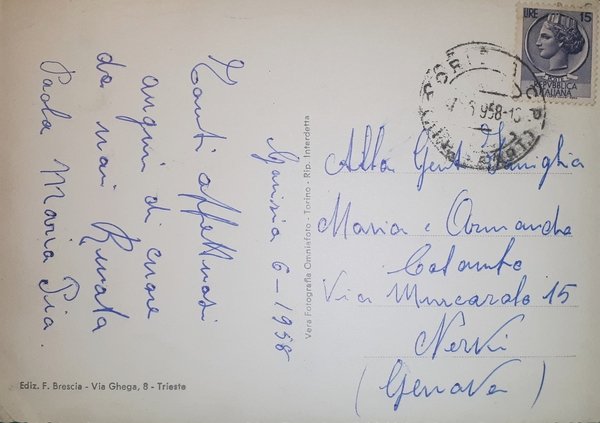 LIRE 15
REPVBBLICA
ITALIANA
GORIZIA
1958-1
6-1958
Tanti affettuosi
auguri di cuore
da noi Renata
Paola Maria Pia.
Alla Gent. Famiglia
Maria e Armando
Colombo
Via Murcarolo 15
Nervi
(Genova)
Vera Fotografia Omniafoto - Torino - Rip. Interdetta
Ediz. F. Brescia - Via Ghega, 8 - Trieste